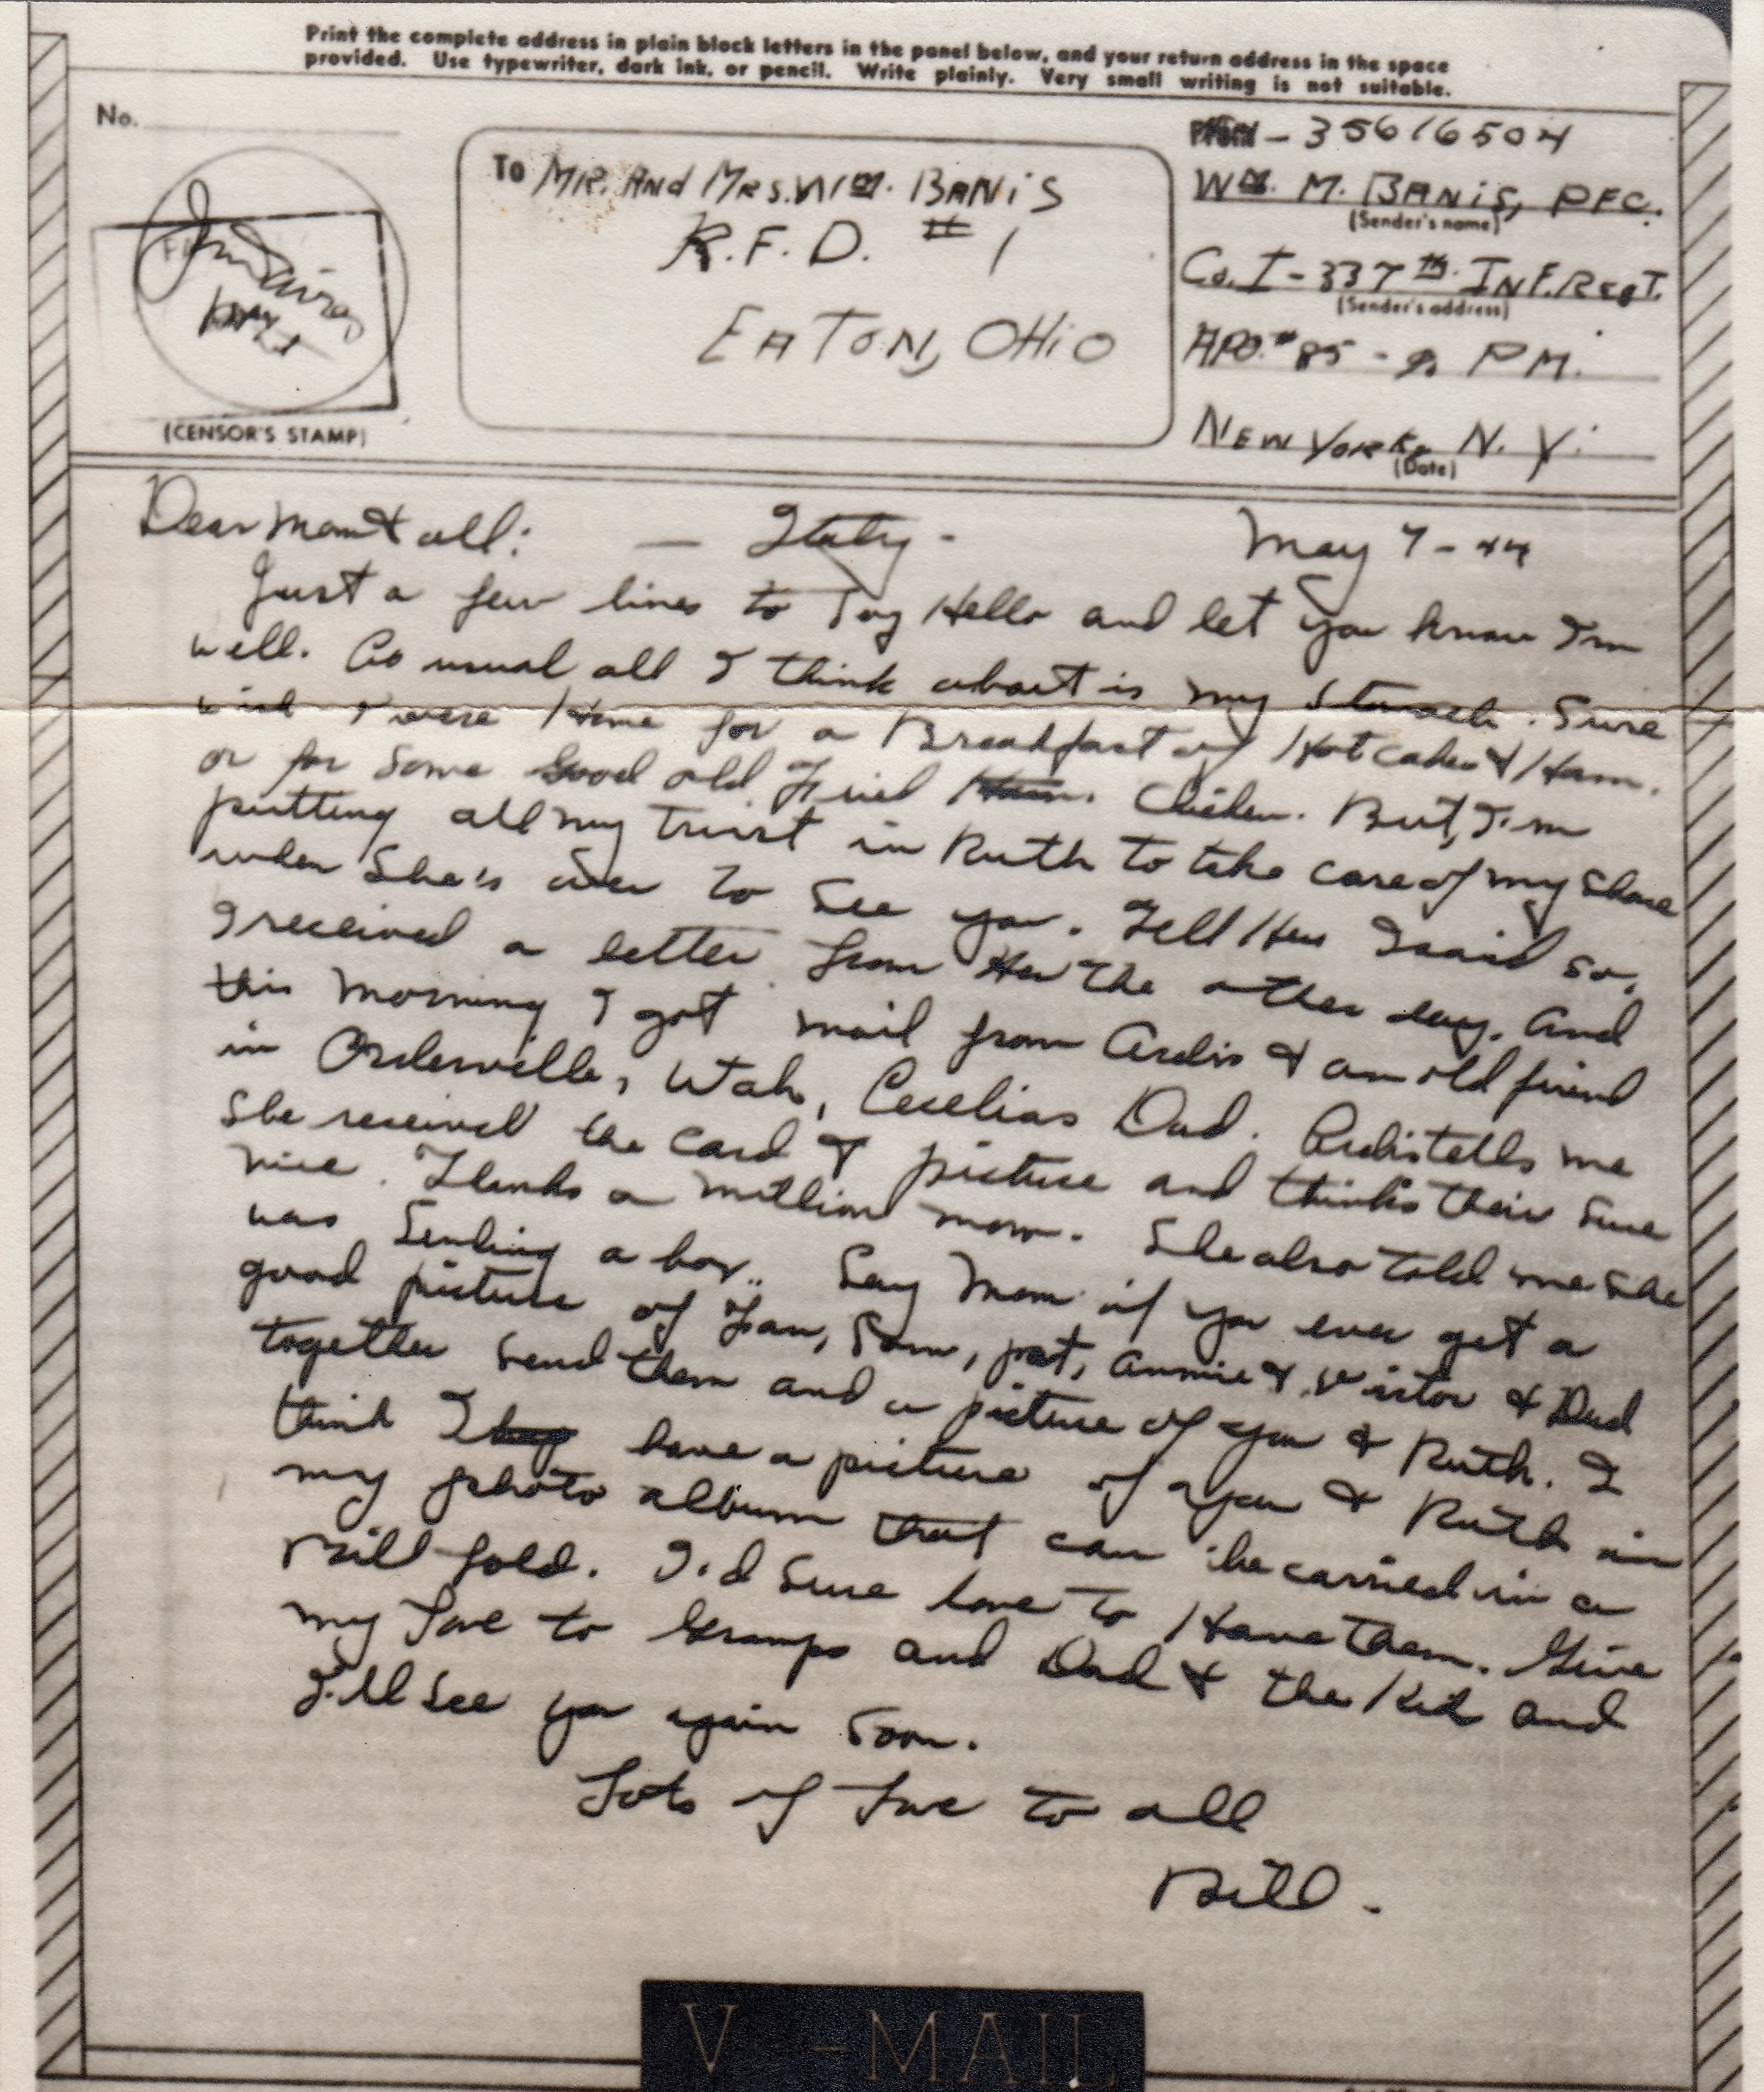 Print the complete address in plain block letters in the panel below, and your return address in the space
provided. Use typewriter, dark ink, or pencil. Write plainly. Very small writing is not suitable.
No.
(CENSOR'S STAMP)
To MR. AND MRS. WM. BANIS
R.F.D. #1
EATON, OHIO
From - 35616504
WM. M. BANIS, PFC.
(Sender's name)
Co. I - 337TH INF. REGT.
(Sender's address)
APO. # 85 - PM.
NEW YORK, N. Y.
(Date)
Dear Mom & all: — Italy - May 7 - 44
Just a few lines to Say Hello and let you know I'm
well. As usual all I think about is my Stomach. Sure
wish I were Home for a Breakfast of Hotcakes & Ham.
or for Some Good old Fried Ham. Chicken. But, I'm
putting all my trust in Ruth to take care of my Share
when She's over to See you. Tell Her I said so.
I received a letter from Her the other day. And
this morning I got mail from Ardis & an old friend
in Orderville, Utah, Cecelias Dad. Ardis tells me
She received the card & picture and thinks their Sure
nice. Thanks a million mom. She also told me She
was Sending a box.. Say Mom if you ever get a
good picture of Fran, Sam, pat, Annie & Victor & Dad
together Send them and a picture of you & Ruth. I
think I have a picture of you & Ruth in
my photo album that can be carried in a
Bill fold. I'd Sure love to Have them. Give
my Love to Gramps and Dad & the Kid and
I'll See you again Soon.
Lots of Love to all
Bill.
V - MAIL